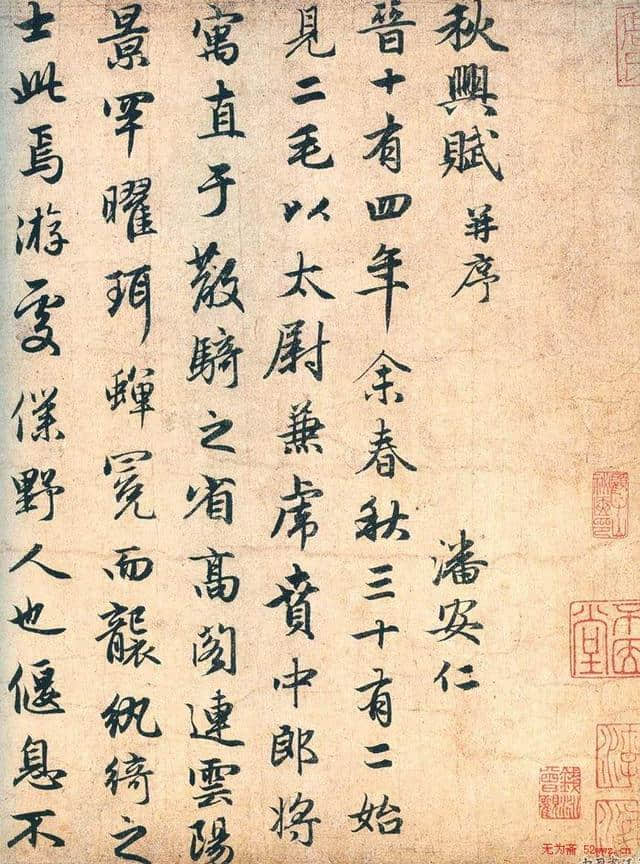 秋興賦 并序 潘安仁
晉十有四年余春秋三十有二始
見二毛以太尉兼虎賁中郎將
寓直于散騎之省高閣連雲陽
景罕曜珥蟬冕而襲紈綺之
士此焉游處僕野人也偃息不
无为斋 52wwz.cn